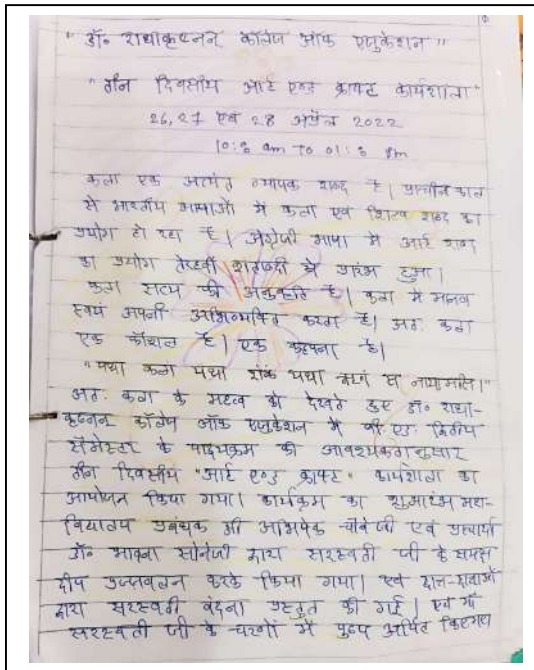 "डॉ० राधाकृष्णन कॉलेज ऑफ एजुकेशन"
"तीन दिवसीय आर्ट एण्ड क्राफ्ट कार्यशाला"
26, 27 एवं 28 अप्रैल 2022
am To pm
कला एक अत्यंत व्यापक शब्द है। प्राचीन काल
से भारतीय भाषाओं में कला एवं शिल्प शब्द का
प्रयोग हो रहा है। अंग्रेजी भाषा में आर्ट शब्द
का प्रयोग तेरहवीं शताब्दी से प्रारंभ हुआ।
कला सत्य की अनुकृति है। कला में मानव
स्वयं अपनी अभिव्यक्ति करता है। अतः कला
एक कौशल है। एक कल्पना है।
"यथा कला यथा यथा
अतः कला के महत्व को देखते हुए डॉ० राधा-
कृष्णन कॉलेज ऑफ एजुकेशन में बी.एड. द्वितीय
सेमेस्टर के पाठ्यक्रम की आवश्यकतानुसार
तीन दिवसीय "आर्ट एण्ड क्राफ्ट" कार्यशाला का
आयोजन किया गया। कार्यक्रम का शुभारंभ महा-
विद्यालय प्रबंधक श्री अभिषेक चौबे जी एवं प्राचार्या
डॉ० भावना सोनेजी द्वारा सरस्वती जी के समक्ष
दीप प्रज्जवलन करके किया गया। एवं छात्र-छात्राओं
द्वारा सरस्वती वंदना प्रस्तुत की गई। एवं माँ
सरस्वती जी के चरणों में पुष्प अर्पित किए गए